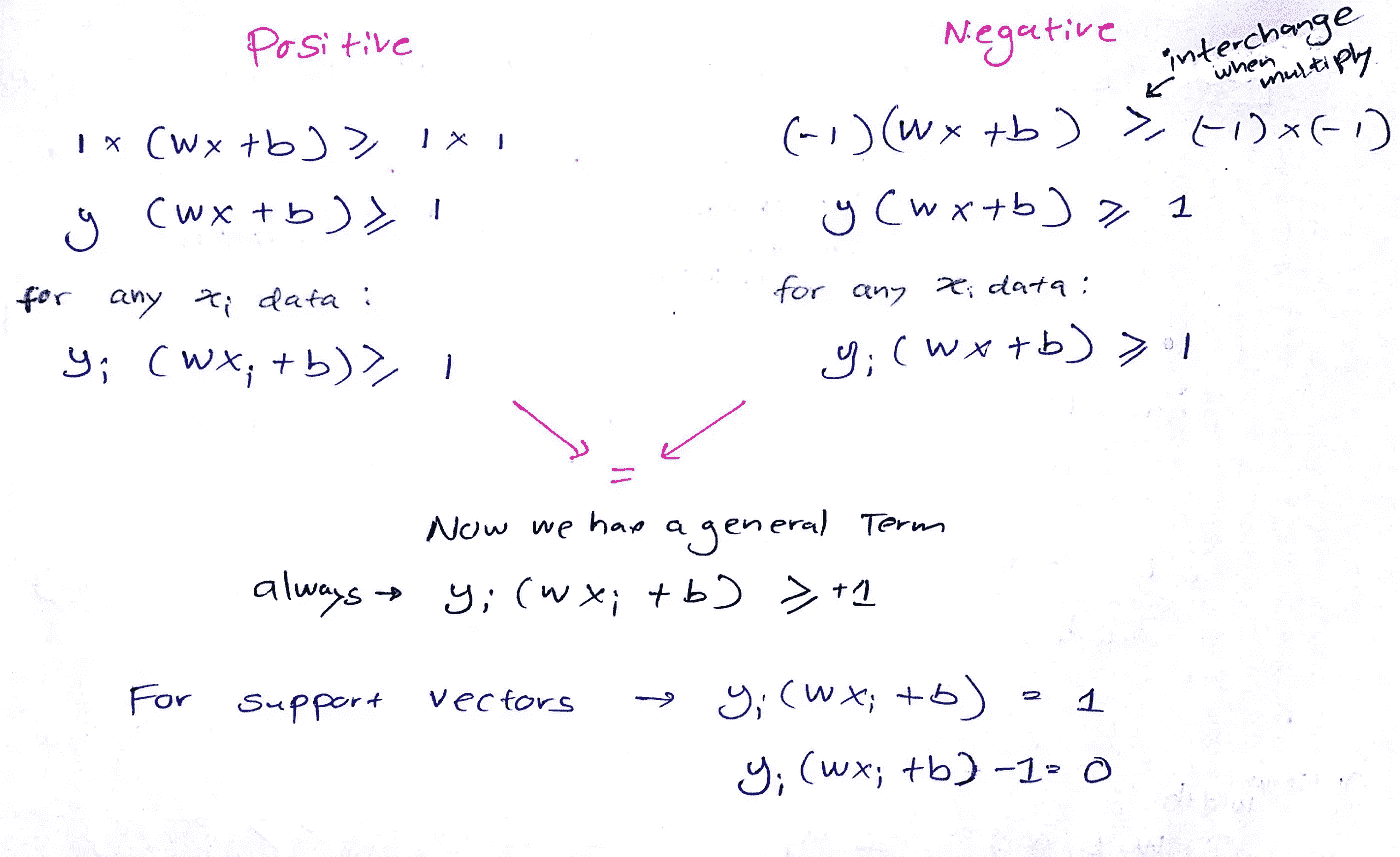 Positive
1 x (wx +b) ⩾ 1 x 1
y (wx + b) ⩾ 1
for any xi data :
yi (wxi + b) ⩾ 1
Negative
interchange
when
multiply
(-1)(wx +b) ⩾ (-1)x(-1)
y (wx+b) ⩾ 1
for any xi data :
yi (wx+b) ⩾ 1
=
Now we has a general Term
always → yi (wxi +b) ⩾ +1
For support vectors → yi (wxi +b) = 1
yi (wxi +b) -1= 0